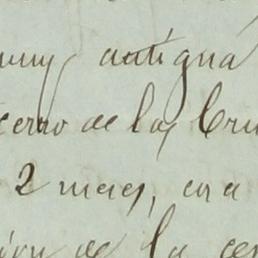 muy antigua
cerro de las Cru
2 meses, era
de la